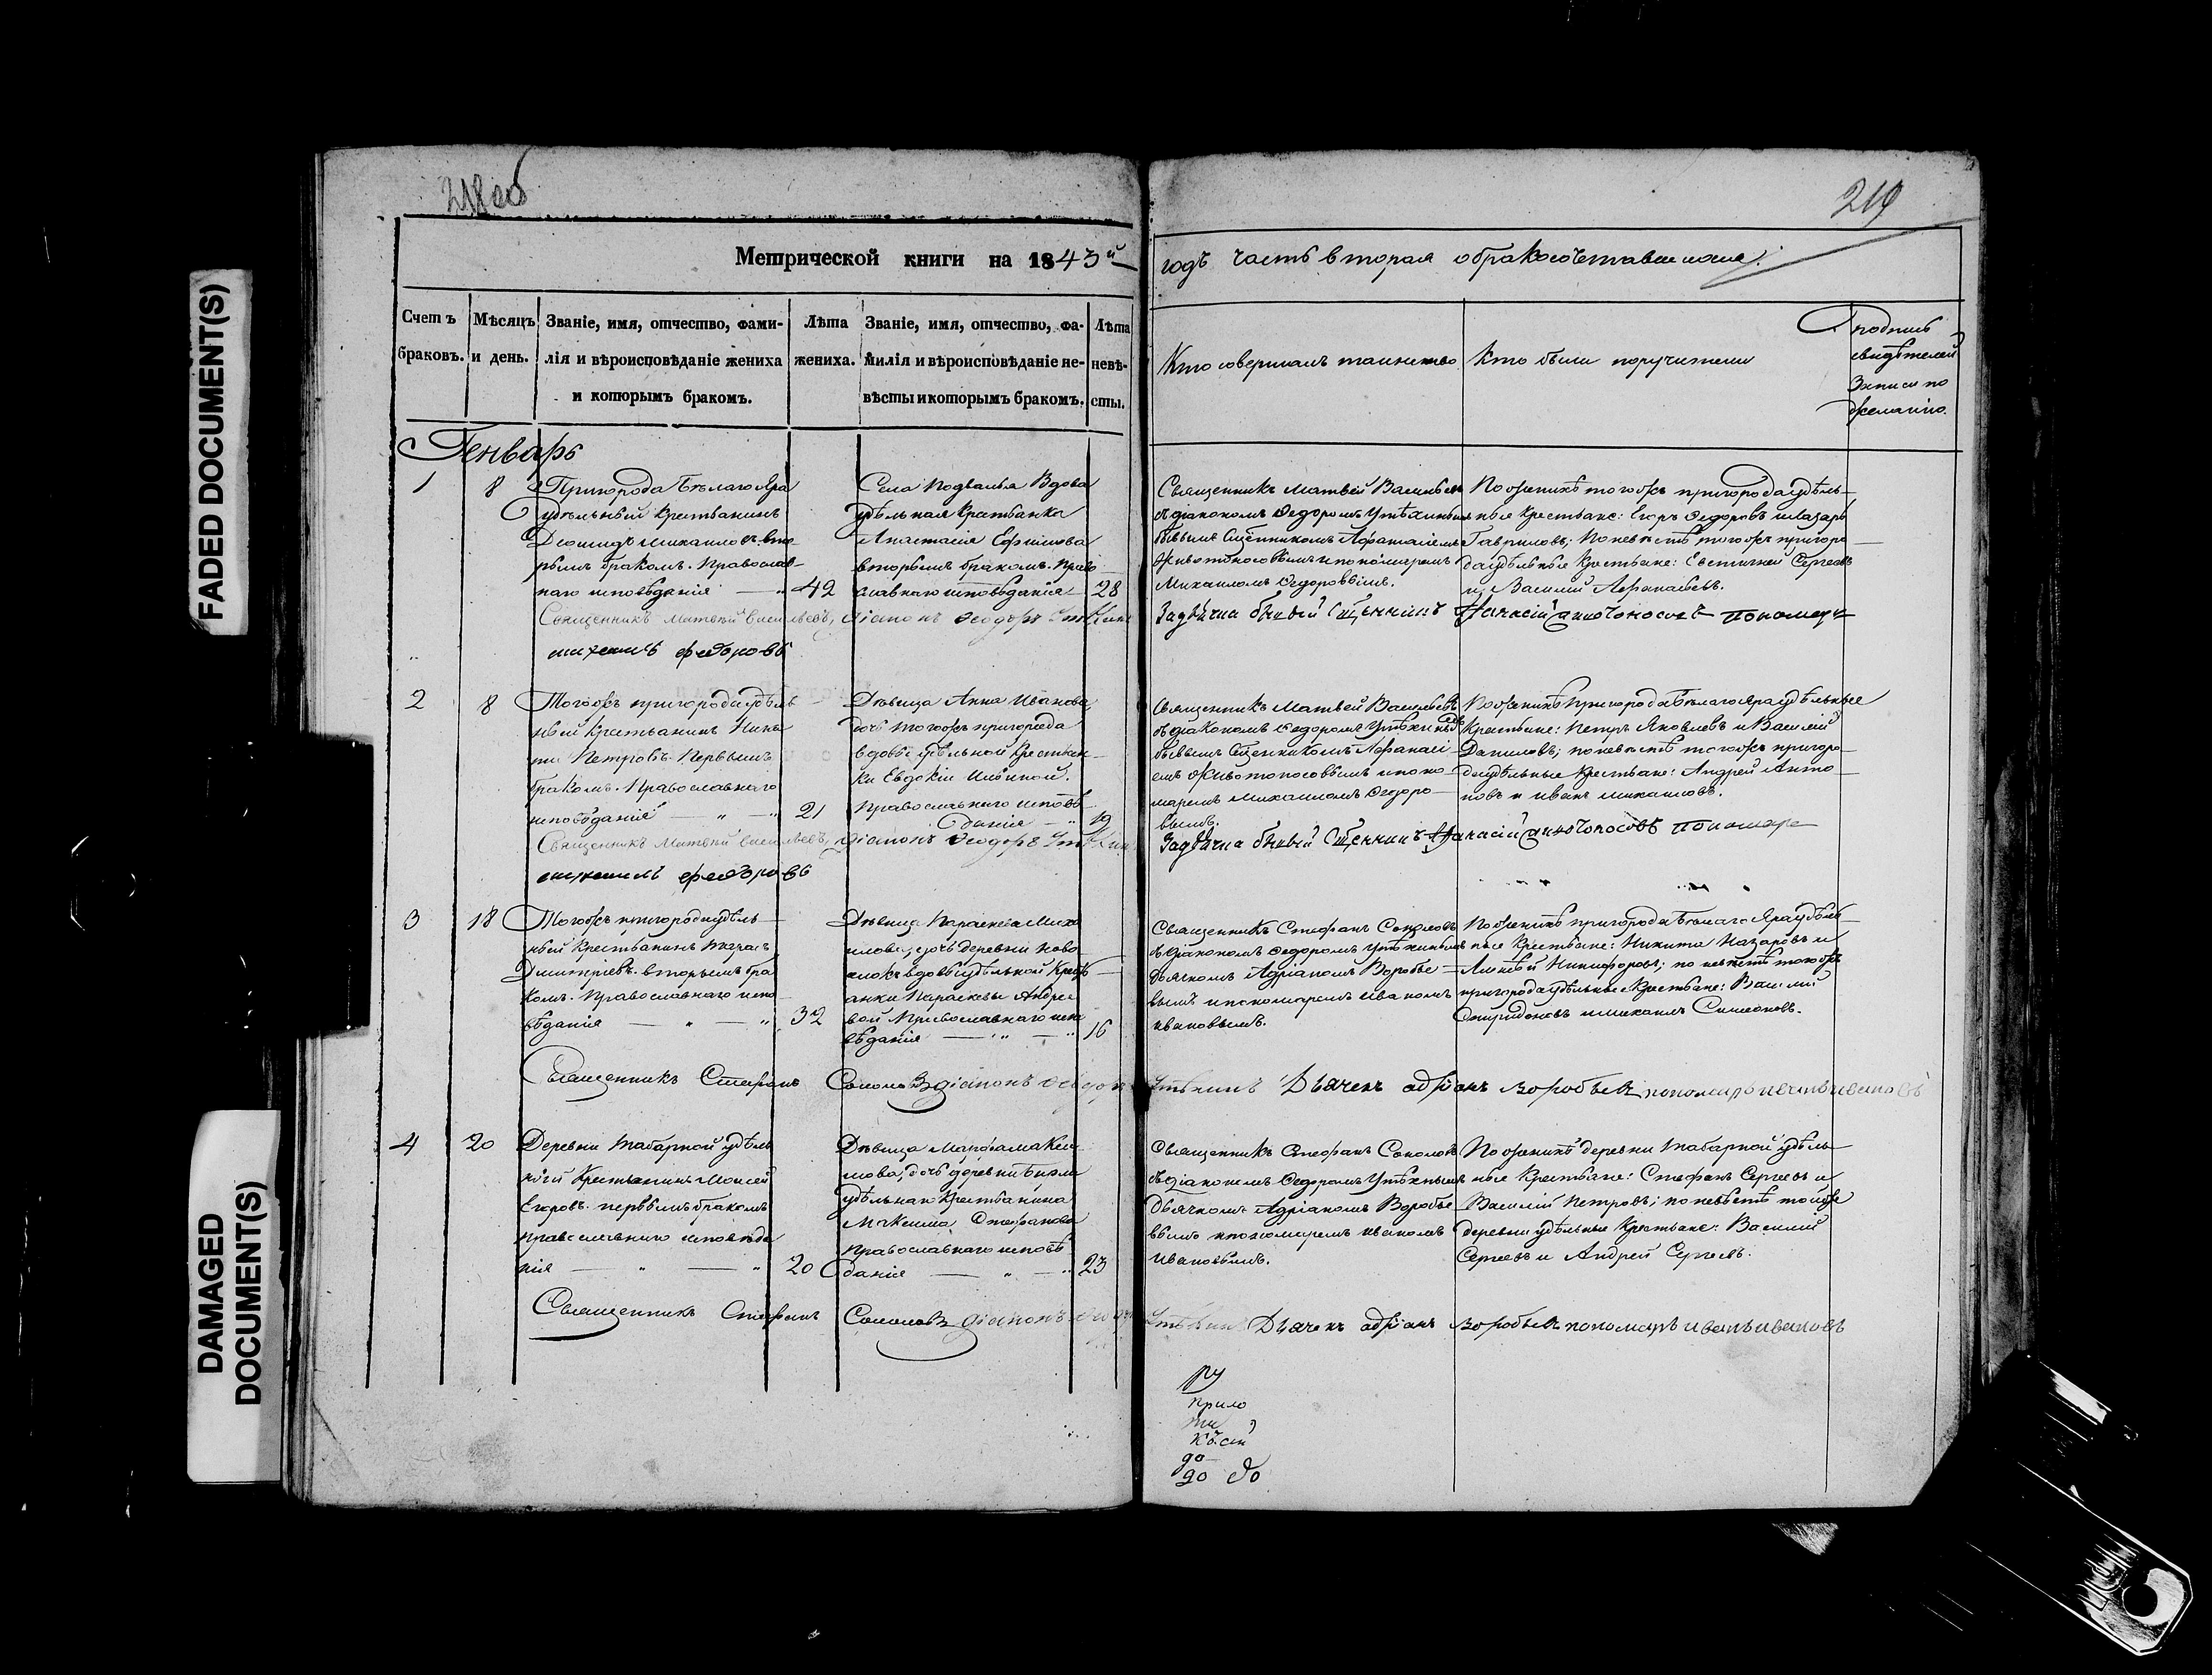 218 об
219
Метрической книги на 1843й
годъ часть вторая о бракосочетавшихся.
Счетъ браковъ.
Мѣсяцъ и день.
Званіе, имя, отчество, фами-
лія и вѣроисповѣданіе жениха
и которымъ бракомъ.
Лѣта
жениха.
Званіе, имя, отчество, фа-
милія и вѣроисповѣданіе не-
вѣсты и которымъ бракомъ.
Лѣта
невѣ-
сты.
Кто совершалъ таинство
Кто были поручители
Подпись
свидѣтелей
записи по
желанію.
Генварь
1
8
Пригорода Бѣлаго Яра
удѣльный крестьянинъ
Діомидъ Михаиловъ вто-
рымъ бракомъ. Православ-
наго исповѣданія
42
Села Подвалья Вдова
удѣльная крестьянка
Анастасія Ефимова
вторымъ бракомъ. Право-
славнаго исповѣданія
28
Священникъ Матвей Васильевъ
съ діакономъ Ѳедоромъ Утѣхинымъ
бывшимъ Сщенникомъ Афанасіемъ
Животоносовымъ и пономаремъ
Михаиломъ Ѳедоровымъ.
По женихѣ тогожъ пригорода удѣль-
ные крестьяне: Егоръ Ѳедоровъ и Лазарь
Гавриловъ; По невѣстѣ тогожъ пригоро-
да удѣльные крестьяне: Евстигней Сергеевъ
и Василий Афанасьевъ.
Священникъ Матвий Васильевъ, діаконъ Ѳеодоръ Утѣхинъ
бывый Сщенникъ Афанасий Животоносовъ пономарь
михаилъ федоровъ
2
8
Тогожъ пригорода удѣль-
ный крестьянинъ Ники-
та Петровъ. Первымъ
бракомъ. Православнаго
исповѣданія
21
Дѣвица Анна Иванова
дочь тогожъ пригорода
вдовы удѣльной крестьян-
ки Евдокіи
Православнаго исповѣ-
данія
19
Священникъ Матвей Васильевъ
съ діакономъ Ѳедоромъ Утѣхинымъ
бывшимъ Сщенникомъ Афанасі-
емъ Животоносовымъ и поно-
маремъ Михаиломъ Ѳедоро-
вымъ.
По женихѣ Пригорода Бѣлаго Яра удѣльные
крестьяне: Петръ Яковлевъ и Василій
Даниловъ; по невѣстѣ тогожъ пригоро-
да удѣльные крестьяне: Андрей Анто-
новъ и Иванъ Михаиловъ.
Священникъ Матвий Васильевъ, діаконъ Ѳеодоръ Утѣхинъ
бывый Сщенникъ Афанасий Животоносовъ пономарь
михаилъ федоровъ
3
18
Тогожъ пригорода удѣль-
ный крестьянинъ
Дмитріевъ. вторымъ бра-
комъ. Православнаго испо-
вѣданія
32
Дѣвица Параскева Миха
илова, дочь деревни
вдовы удѣльной кресть-
янки Параскевы Андрее
вой Православнаго испо
вѣданія
16
Священникъ Стефанъ Соколовъ
съ діакономъ Ѳедоромъ Утѣхинымъ
дьячкомъ Адріаномъ Воробье-
вымъ и пономаремъ Иваномъ
Ивановымъ.
По женихѣ пригорода Бѣлаго Яра удѣль-
ные крестьяне: Никита Назаровъ и
Никифоровъ; по невѣстѣ тогожъ
пригорода удѣльные крестьяне: Василій
Спиридоновъ и Михаилъ Симоновъ.
Священникъ Стефанъ Соколовъ діаконъ Ѳеодоръ Утѣхинъ Дьячекъ адріанъ воробьевъ пономарь иванъ ивановъ
4
20
Деревни Табарной удѣль
ной Крестьянинъ Моисей
Егоровъ. первымъ бракомъ
православнаго исповѣда
нія
20
Дѣвица Марфа Макси-
мова, дочь деревни
удѣльнаго крестьянина
Максима Стефанова
Православнаго исповѣ
данія
23
Священникъ Стефанъ Соколовъ
съ діакономъ Ѳедоромъ Утѣхинымъ
дьячкомъ Адріаномъ Воробье
вымъ и пономаремъ Иваномъ
Ивановымъ.
По женихѣ деревни Табарной удѣль-
ные крестьяне: Стефанъ Сергеевъ и
Василий Петровъ; по невѣстѣ тойже
деревни удѣльные крестьяне: Василий
Сергеевъ и Андрей Сергеевъ.
Священникъ Стефанъ Соколовъ діаконъ Ѳеодоръ Утѣхинъ Дьячекъ адріанъ воробьевъ пономарь иванъ ивановъ
ру
прило
до
до до
FADED DOCUMENT(S)
DAMAGED
DOCUMENT(S)